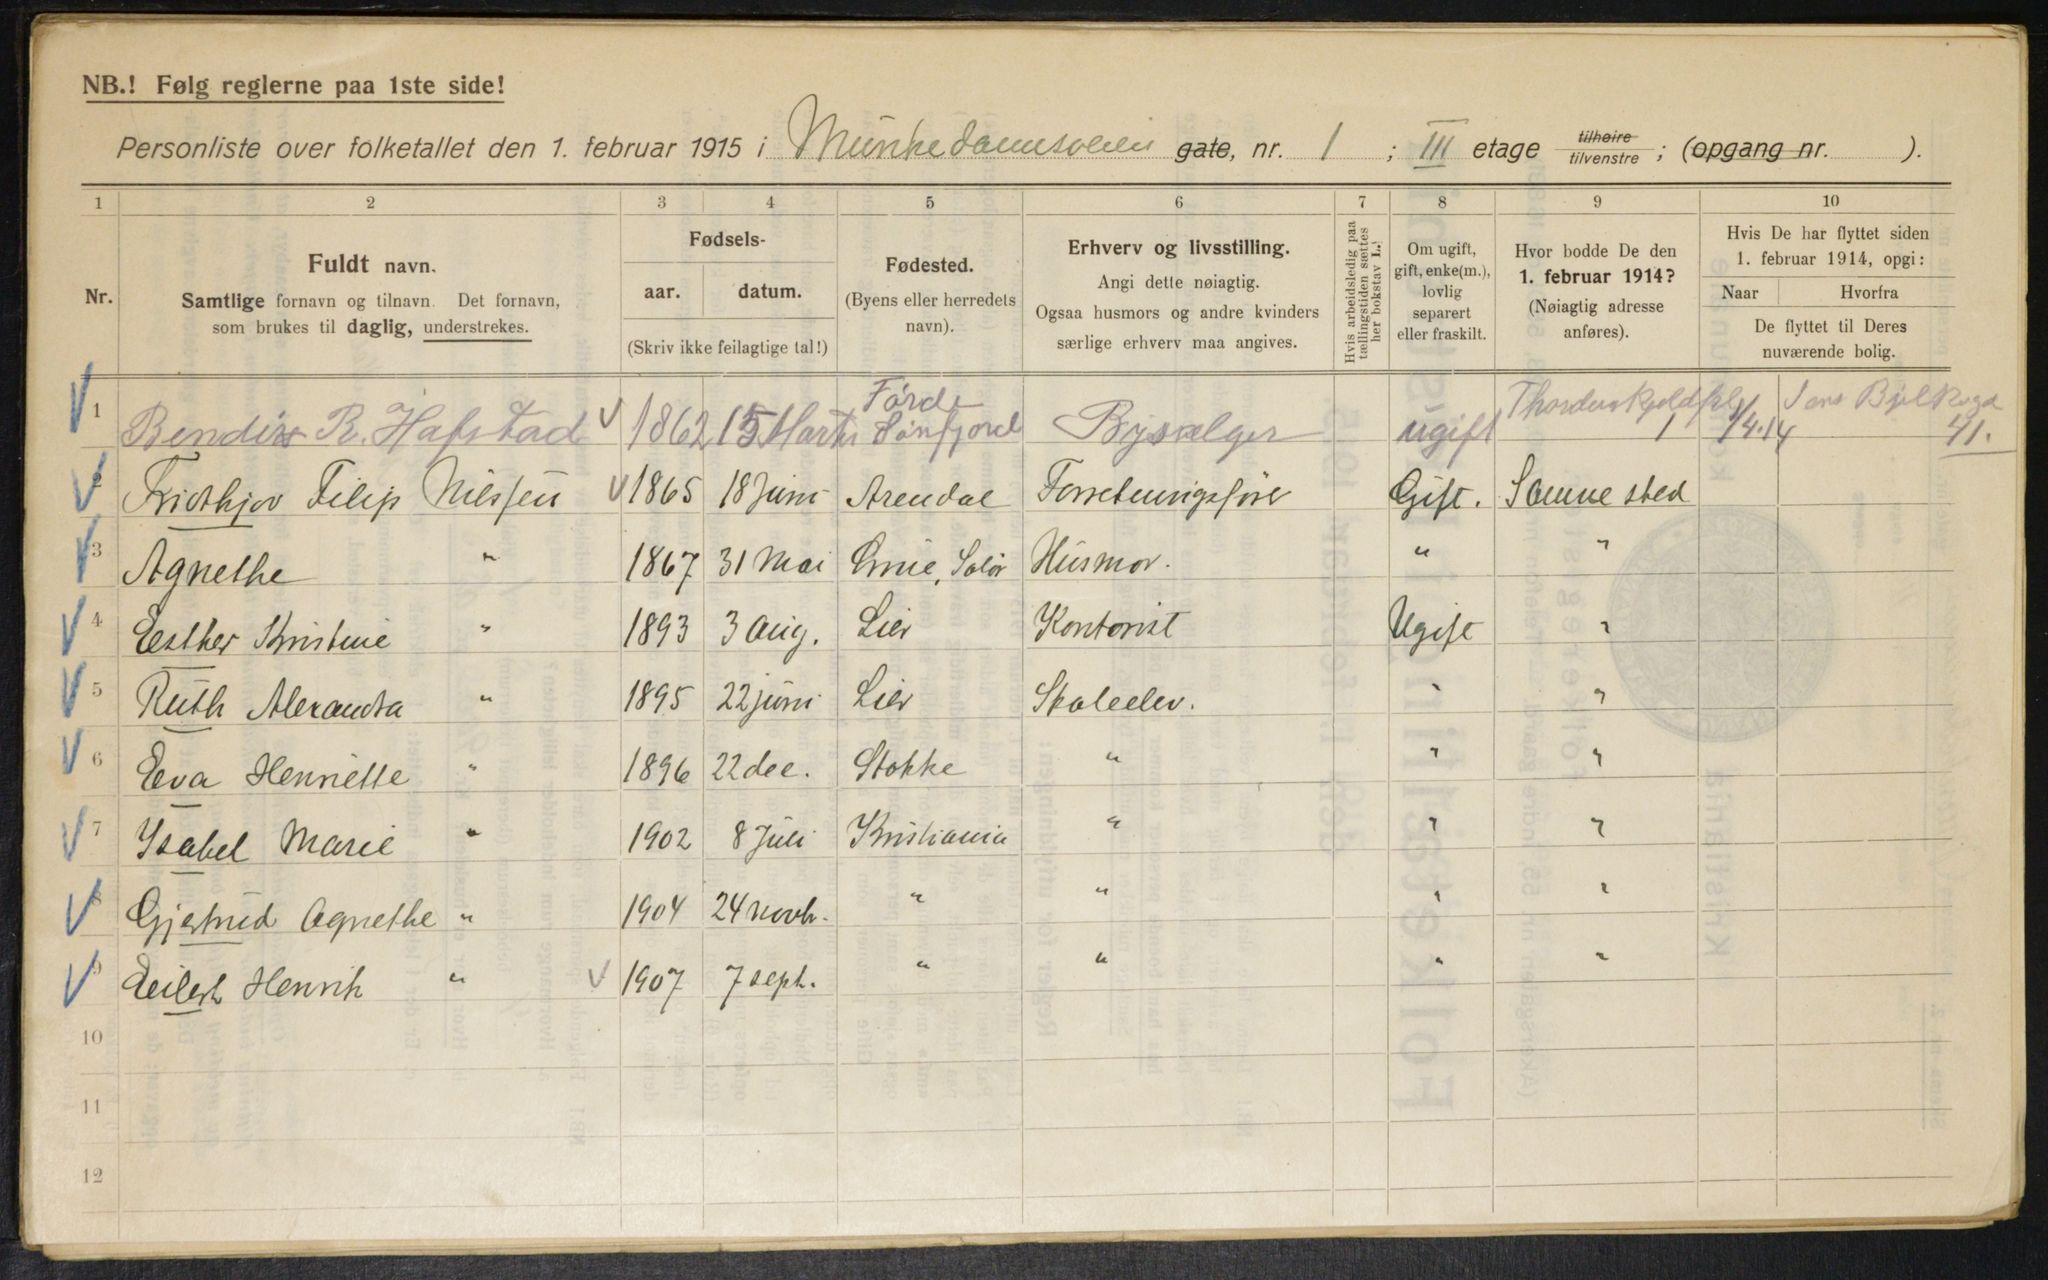 NB.! Følg reglerne paa 1ste side!
Personliste over folketallet den 1. februar 1915 i Munkedamsveien gate, nr. 1 ; III etage tilhøire tilvenstre ; (opgang nr. ).
1 2 3 4 5 6 7 8 9 10
Nr.
Fuldt navn.
Samtlige fornavn og tilnavn. Det fornavn,
som brukes til daglig, understrekes.
Fødsels-
aar. datum.
(Skriv ikke feilagtige tal!)
Fødested.
(Byens eller herredets
navn).
Erhverv og livsstilling.
Angi dette nøiagtig.
Ogsaa husmors og andre kvinders
særlige erhverv maa angives.
Hvis arbeidsledig paa
tællingstiden sættes
her bokstav L.
Om ugift,
gift, enke(m.),
lovlig
separert
eller fraskilt.
Hvor bodde De den
1. februar 1914?
(Nøiagtig adresse
anføres).
Hvis De har flyttet siden
1. februar 1914, opgi:
Naar Hvorfra
De flyttet til Deres
nuværende bolig.
1 Bendix R. Hafstad 1862 15 Marts Førde Søndfjord Bysælger ugift Thordenskjoldspl 1 1/4.14 Jens Bjelkesgd 41.
2 Fridthjov Filip Nilssen 1865 18 Juni Arendal Forretningsfører Gift. Samme sted
3 Agnethe " 1867 31 Mai Grue, Solør Husmor. " "
4 Esther Kristine " 1893 3 Aug. Lier Kontorist Ugift "
5 Ruth Alexandra " 1895 22 juni Lier Skoleelev. " "
6 Eva Henriette " 1896 22 dec. Stokke " " "
7 Ysabel Marie " 1902 8 Juli Kristiania " " "
8 Gjertrud Agnethe " 1904 24 novb. " " " "
9 Eilert Henrik " 1907 7 sept. " " " "
10
11
12